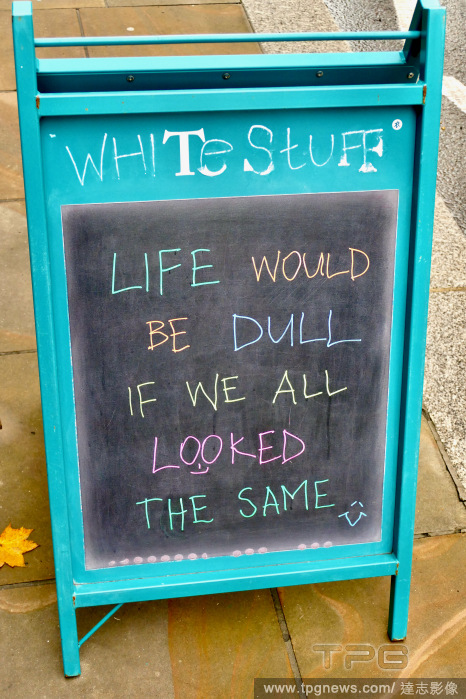 WHITe StUFF
LIFE WOULD
BE DULL
IF WE ALL
LOOKED
THE SAME
TPG
www.tpgnews.com/達志影像